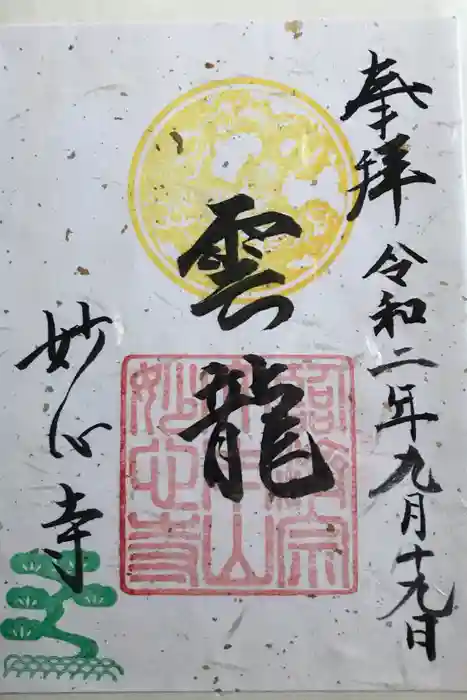 奉拝 令和二年九月十九日
雲龍
妙心寺
臨済宗
正法山
妙心寺